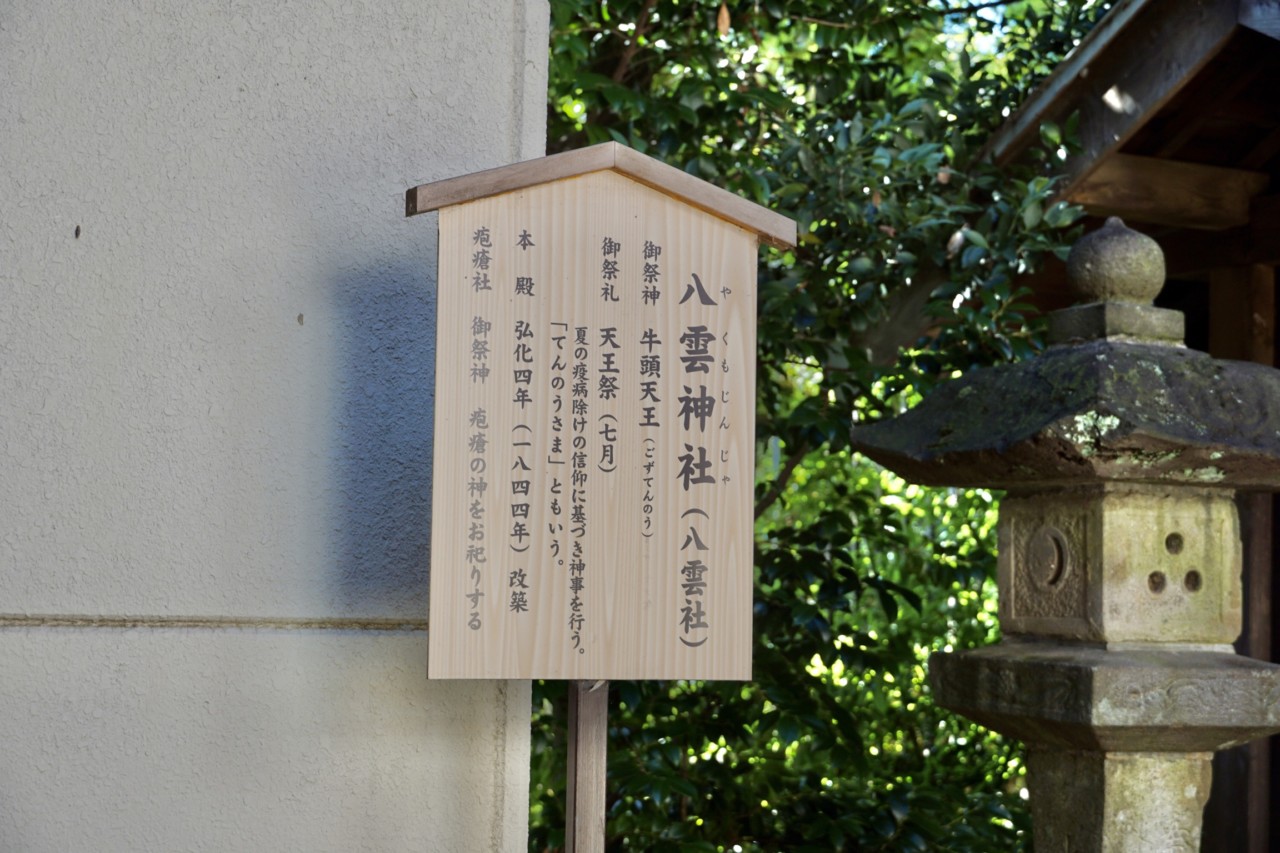 やくもじんじゃ
八雲神社(八雲社)
御祭神 牛頭天王(ごずてんのう)
御祭礼 天王祭(七月)
夏の疫病除けの信仰に基づき神事を行う。
「てんのうさま」ともいう。
本殿 弘化四年(一八四四年)改築
疱瘡社 御祭神 疱瘡の神をお祀りする